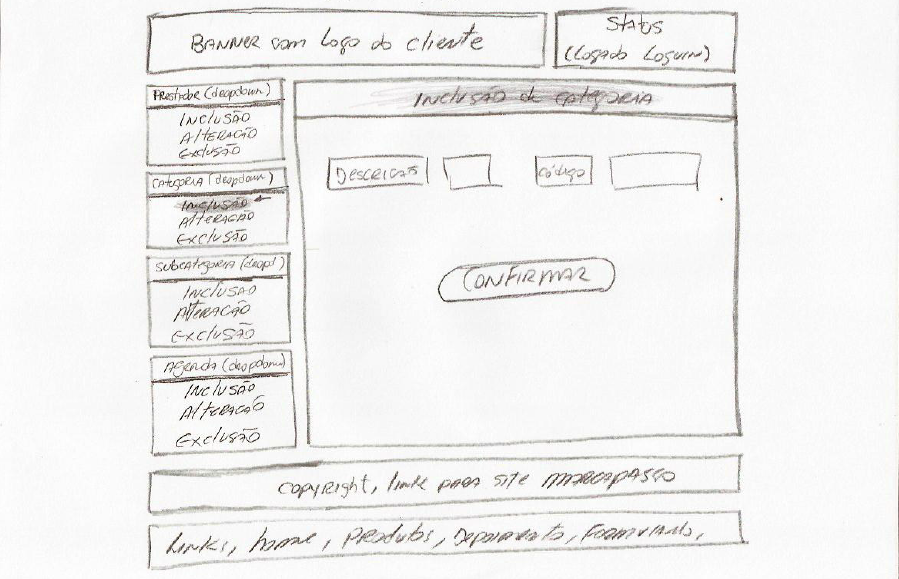 BANNER com Logo do cliente
Status
(Logado Loguin)
Prestador (dropdown)
INCLUSÃO
ALTERAÇÃO
EXCLUSÃO
CATEGORIA (dropdown)
INCLUSÃO
ALTERAÇÃO
EXCLUSÃO
SUBCATEGORIA (drop↓)
INCLUSÃO
ALTERAÇÃO
EXCLUSÃO
AGENDA (dropdown)
INCLUSÃO
ALTERAÇÃO
EXCLUSÃO
INCLUSÃO de CATEGORIA
Descricao
Código
CONFIRMAR
Copyright, link para site marcapasso
Links, home, Produtos, Depoimento, Formulario,